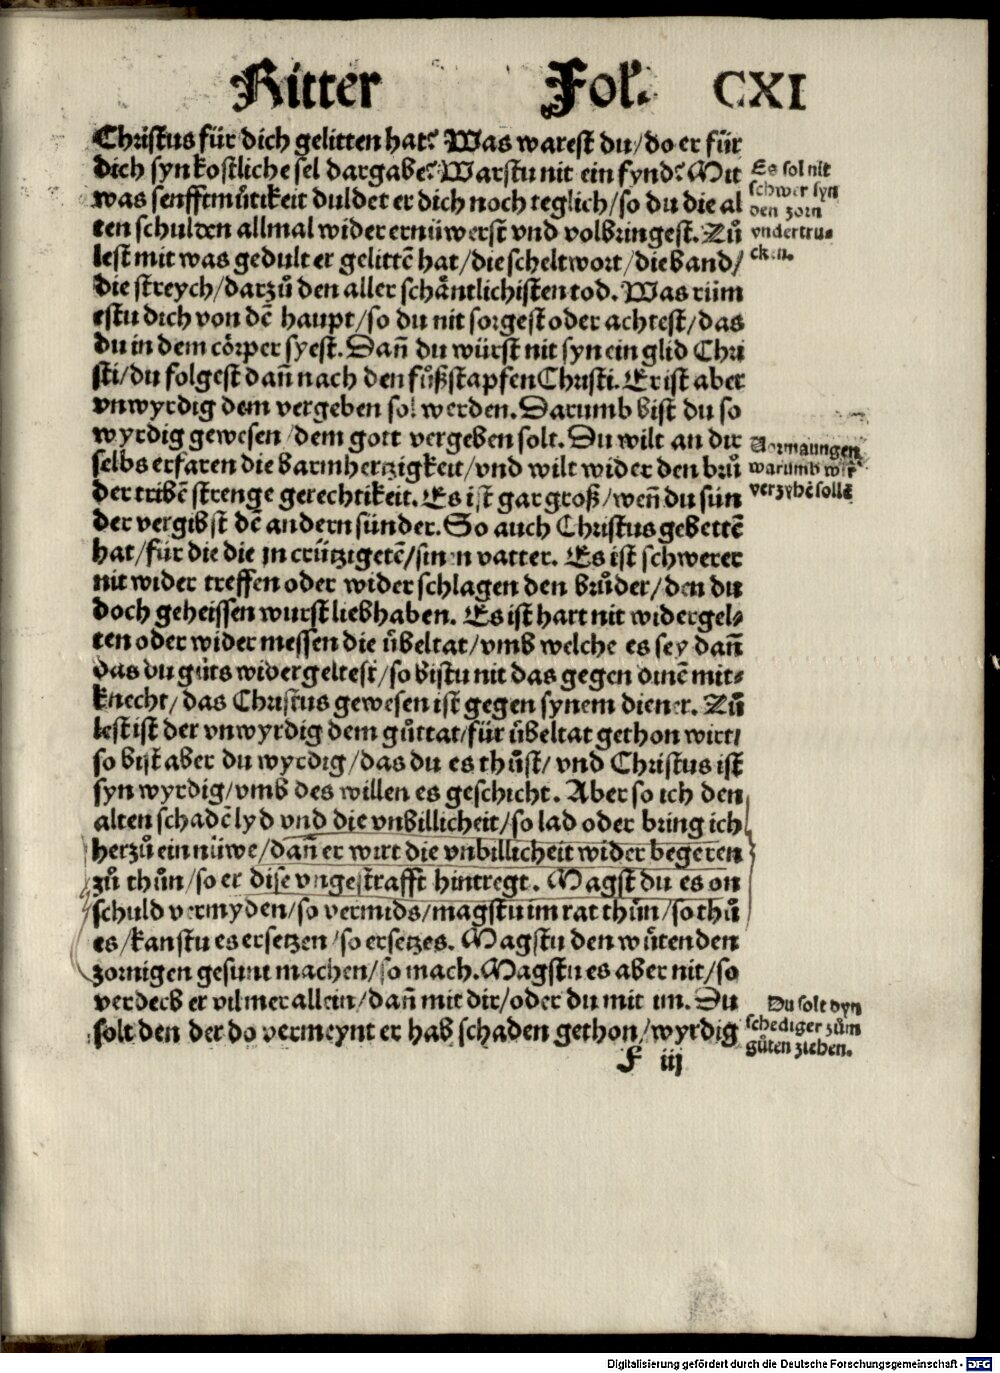 Ritter Fol. CXI
Christus für dich gelitten hat? Was warest du/do er für
dich syn kostliche sel dargabe? Warstu nit ein fynd? Mit
was senfftmůtikeit duldet er dich noch teglich/so du die al
ten schulden allmal wider ernüwerst vnd volbringest. Zů
lest mit was gedult er gelittē hat/die scheltwort/die band/
die streych/darzů den aller schantlichisten tod. Was rüm
estu dich von dē haupt/so du nit sorgest oder achtest/das
du in dem cörper syest. Dañ du würst nit syn ein glid Chri
sti/du folgest dañ nach den fůßstapfen Christi. Er ist aber
vnwyrdig dem vergeben sol werden. Darumb bist du so
wyrdig gewesen/dem gott vergeben solt. Du wilt an dir
selbs erfaren die barmhertzigkeit/vnd wilt wider den brů
der tribē strenge gerechtikeit. Es ist gar groß/weñ du sün
der vergibst dē andern sünder. So auch Christus gebettē
hat/für die die jn crützigetē/sinen vatter. Es ist schwerer
nit wider treffen oder wider schlagen den brůder/den du
doch geheissen wurst liebhaben. Es ist hart nit widergel⸗
ten oder wider messen die übeltat/vmb welche es sey dañ
das du gůts widergeltest/so bistu nit das gegen dinē mit⸗
knecht/das Christus gewesen ist gegen synem diener. Zů
lest ist der vnwyrdig dem gůttat/für übeltat gethon wirt/
so bist aber du wyrdig/das du es thůst/vnd Christus ist
syn wyrdig/vmb des willen es geschicht. Aber so ich den
alten schadē lyd vnd die vnbillicheit/so lad oder bring ich
herzů ein nüwe/dañ er wirt die vnbillicheit wider begeren
zů thůn/so er dise vngestrafft hintregt. Magst du es on
schuld vermyden/so vermids/magstu im rat thůn/so thů
es/kanstu es ersetzen/so ersetzes. Magstu den wůtenden
zornigen gesunt machen/so mach. Magstu es aber nit/so
verderb er vil mer allein/dañ mit dir/oder du mit im. Du
solt den der do vermeynt er hab schaden gethon/wyrdig
F iij
Es sol nit
schwer syn
den zorn
vndertru⸗
cken.
Vermanungen
warumb wir
verzyhē sollē
Du solt dyn
schediger zům
gůten ziehen.
Digitalisierung gefördert durch die Deutsche Forschungsgemeinschaft - DFG